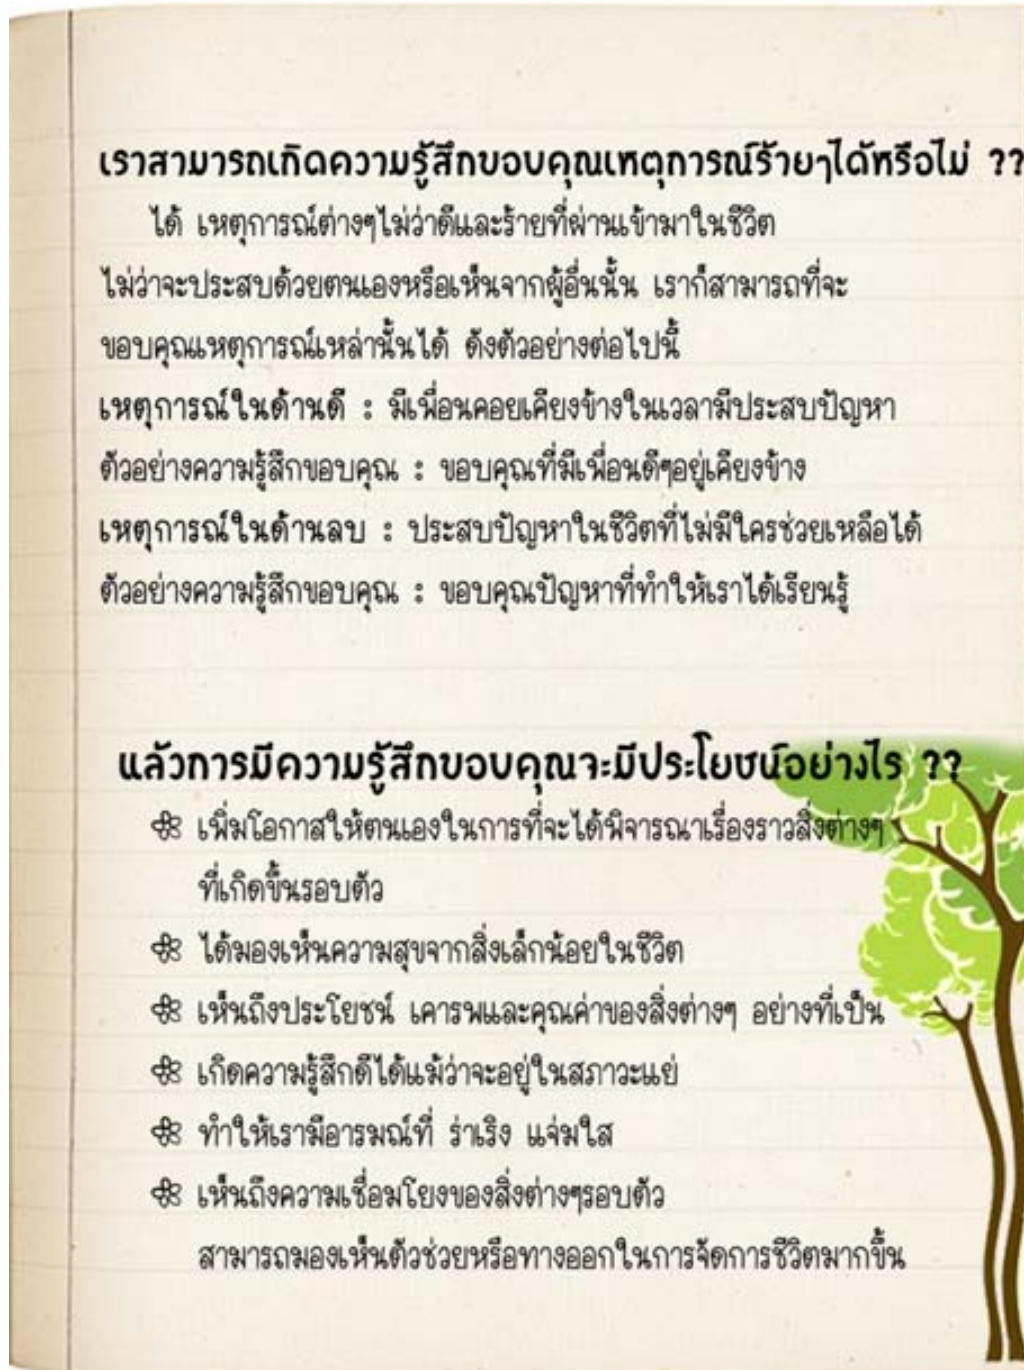 เราสามารถเกิดความรู้สึกขอบคุณเหตุการณ์ร้ายๆได้หรือไม่ ??
ได้ เหตุการณ์ต่างๆไม่ว่าดีและร้ายที่ผ่านเข้ามาในชีวิต
ไม่ว่าจะประสบด้วยตนเองหรือเห็นจากผู้อื่นนั้น เราก็สามารถที่จะ
ขอบคุณเหตุการณ์เหล่านั้นได้ ดังตัวอย่างต่อไปนี้
เหตุการณ์ในด้านดี : มีเพื่อนคอยเคียงข้างในเวลามีประสบปัญหา
ตัวอย่างความรู้สึกขอบคุณ : ขอบคุณที่มีเพื่อนดีๆอยู่เคียงข้าง
เหตุการณ์ในด้านลบ : ประสบปัญหาในชีวิตที่ไม่มีใครช่วยเหลือได้
ตัวอย่างความรู้สึกขอบคุณ : ขอบคุณปัญหาที่ทำให้เราได้เรียนรู้
แล้วการมีความรู้สึกขอบคุณจะมีประโยชน์อย่างไร ??
เพิ่มโอกาสให้ตนเองในการที่จะได้พิจารณาเรื่องราวสิ่งต่างๆ
ที่เกิดขึ้นรอบตัว
ได้มองเห็นความสุขจากสิ่งเล็กน้อยในชีวิต
เห็นถึงประโยชน์ เคารพและคุณค่าของสิ่งต่างๆ อย่างที่เป็น
เกิดความรู้สึกดีได้แม้ว่าจะอยู่ในสภาวะแย่
ทำให้เรามีอารมณ์ที่ ร่าเริง แจ่มใส
เห็นถึงความเชื่อมโยงของสิ่งต่างๆรอบตัว
สามารถมองเห็นตัวช่วยหรือทางออกในการจัดการชีวิตมากขึ้น